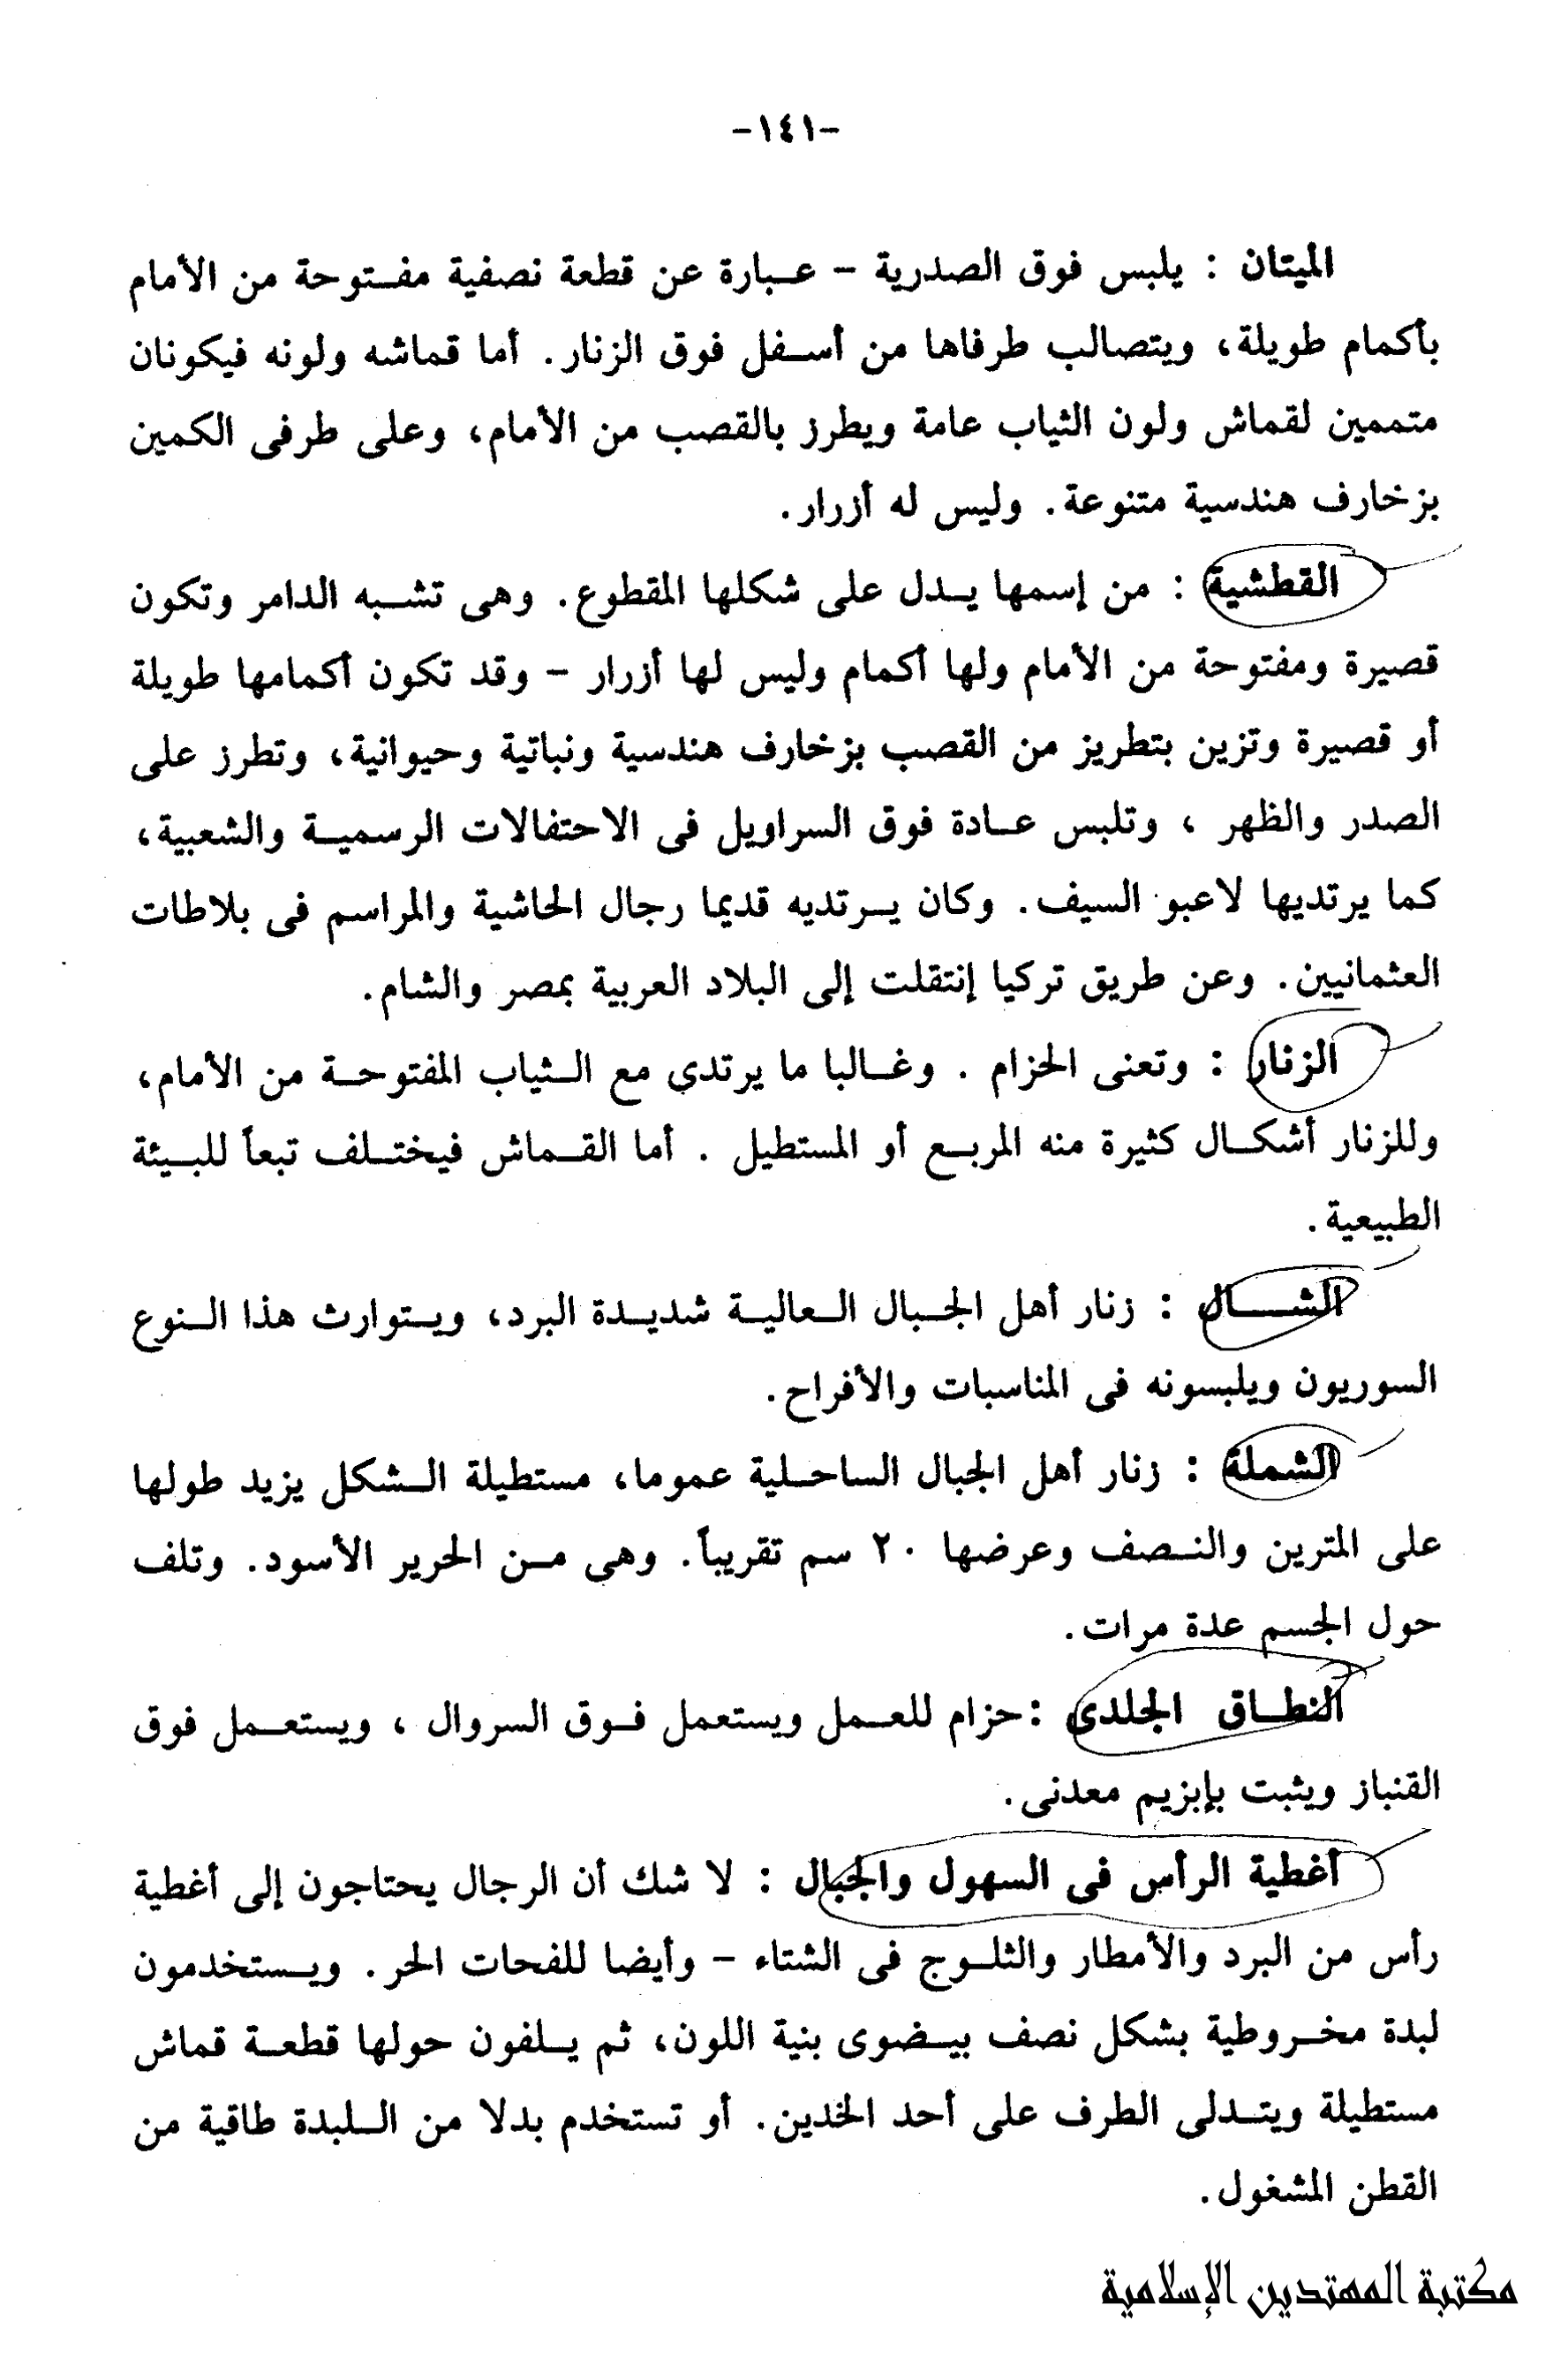 -١٤١-
الميتان : يلبس فوق الصدرية - عبارة عن قطعة نصفية مفتوحة من الأمام
بأكمام طويلة، ويتصالب طرفاها من أسفل فوق الزنار. أما قماشه ولونه فيكونان
متممين لقماش ولون الثياب عامة ويطرز بالقصب من الأمام، وعلى طرفى الكمين
بزخارف هندسية متنوعة. وليس له أزرار.
القطشية : من إسمها يدل على شكلها المقطوع. وهى تشبه الدامر وتكون
قصيرة ومفتوحة من الأمام ولها أكمام وليس لها أزرار - وقد تكون أكمامها طويلة
أو قصيرة وتزين بتطريز من القصب بزخارف هندسية ونباتية وحيوانية، وتطرز على
الصدر والظهر ، وتلبس عادة فوق السراويل فى الاحتفالات الرسمية والشعبية،
كما يرتديها لاعبو السيف. وكان يرتديه قديما رجال الحاشية والمراسم فى بلاطات
العثمانيين. وعن طريق تركيا إنتقلت إلى البلاد العربية بمصر والشام.
الزنار : وتعنى الحزام . وغالبا ما يرتدي مع الثياب المفتوحة من الأمام،
وللزنار أشكال كثيرة منه المربع أو المستطيل . أما القماش فيختلف تبعاً للبيئة
الطبيعية.
الشال : زنار أهل الجبال العالية شديدة البرد، ويتوارث هذا النوع
السوريون ويلبسونه فى المناسبات والأفراح.
الشملة : زنار أهل الجبال الساحلية عموما، مستطيلة الشكل يزيد طولها
على المترين والنصف وعرضها ٢٠ سم تقريباً. وهى من الحرير الأسود. وتلف
حول الجسم عدة مرات.
النطاق الجلدى : حزام للعمل ويستعمل فوق السروال ، ويستعمل فوق
القنباز ويثبت بإبزيم معدنى.
أغطية الرأس فى السهول والجبال : لا شك أن الرجال يحتاجون إلى أغطية
رأس من البرد والأمطار والثلوج فى الشتاء - وأيضا للفحات الحر. ويستخدمون
لبدة مخروطية بشكل نصف بيضوى بنية اللون، ثم يلفون حولها قطعة قماش
مستطيلة ويتدلى الطرف على أحد الخدين. أو تستخدم بدلا من اللبدة طاقية من
القطن المشغول.
مكتبة المهتدين الإسلامية